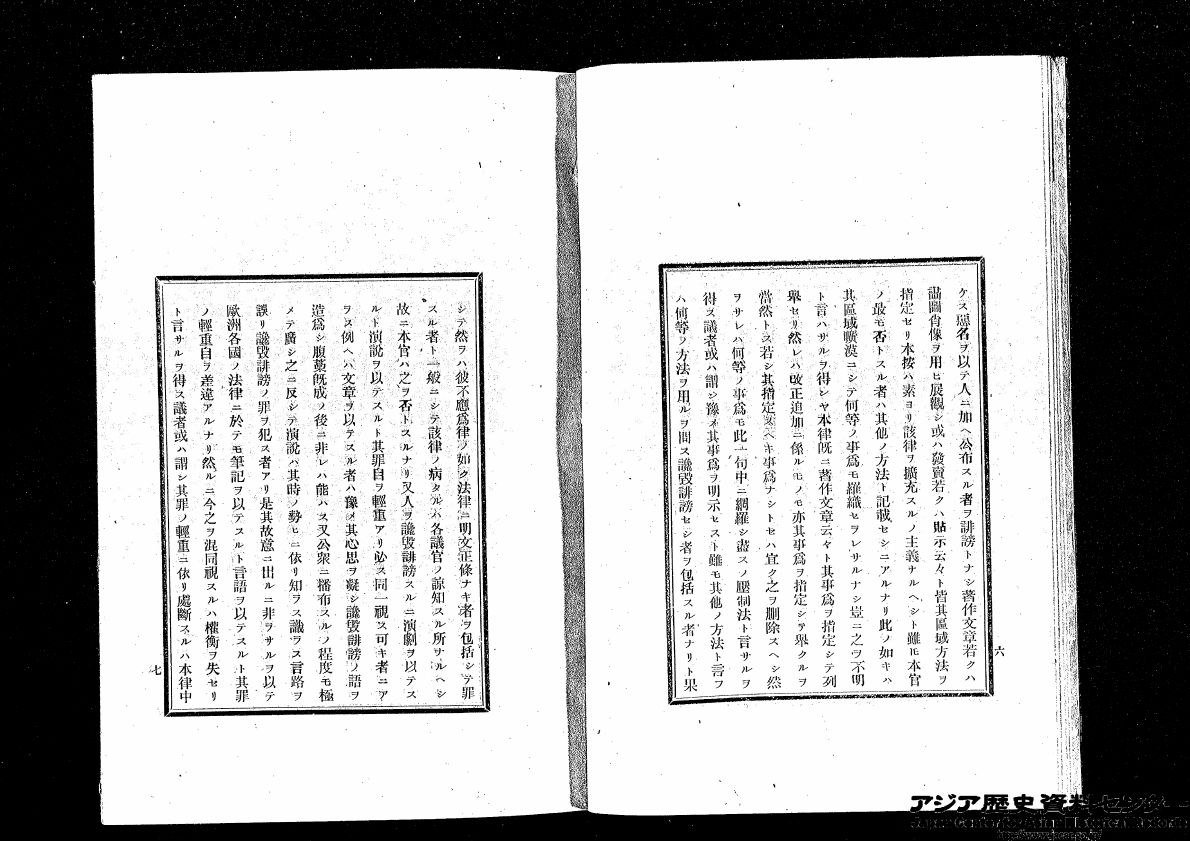 ケス惡名ヲ以テ人ニ加ヘ公布スル者ヲ誹謗トナシ著作文章若クハ
畵圖肖像ヲ用ヒ展觀シ或ハ發賣若クハ貼示云々ト皆其區域方法ヲ
指定セリ本按ハ素ヨリ該律ヲ擴充スルノ主義ナルヘシト雖モ本官
ノ最モ否トスル者ハ其他ノ方法ト記載セシニアルナリ此ノ如キハ
其區域曠漠ニシテ何等ノ事爲モ羅織セラレサルナシ豈ニ之ヲ不明
ト言ハサルヲ得シヤ本律既ニ著作文章云々ト其事爲ヲ指定シテ列
擧セリ然レハ改正追加ニ係ルモノモ亦其事爲ヲ指定シテ擧クルヲ
當然トス若シ其指定スヘキ事爲ナシトセハ宜ク之ヲ刪除スヘシ然
ラサレハ何等ノ事爲モ此一句中ニ網羅シ盡ス壓制法ト言サルヲ
得ス議者或ハ謂ジ豫メ其事爲ヲ明示セスト雖モ其他ノ方法ト言フ
ハ何等ノ方法ヲ用ルヲ問ス讒毀誹謗セシ者ヲ包括スル者ナリト果
六
シテ然ラハ彼不應爲律ノ如ク法律ニ明文正條ナキ者ヲ包括シテ罪
スル者ト一般ニシテ該律ノ病タルハ各議官ノ諒知スル所ナルヘシ
故ニ本官ハ之ヲ否トスルナリ又人ヲ讒毀誹謗スルニ演劇ヲ以テス
ルト演説ヲ以テスルト其罪自ラ輕重アリ必ス同一視ス可キ者ニア
ラス例ヘハ文章ヲ以テスル者ハ豫メ其心思ヲ凝シ讒毀誹謗ノ語ヲ
造爲シ腹藁既成ノ後ニ非レハ能ハス又公衆ニ播布スルノ程度モ極
メテ廣シ之ニ反シテ演説ハ其時ノ勢モニ依リ知ラス識ラス言路ヲ
誤リ讒毀誹謗ノ罪ヲ犯ス者アリ是其故意ニ出ルニ非ラサルヲ以テ
歐洲各國ノ法律ニ於テモ筆記ヲ以テスルト言語ヲ以テスルト其罪
ノ輕重自ラ差違アルナリ然ルニ今之ヲ混同視スルハ權衡ヲ失セリ
ト言サルヲ得ス議者或ハ謂シ其罪ノ輕重ニ依リ處斷スルハ本律中
七
アジア歴史資料センター
Japan Center for Asian Historical Records
http://www.jacar.go.jp/